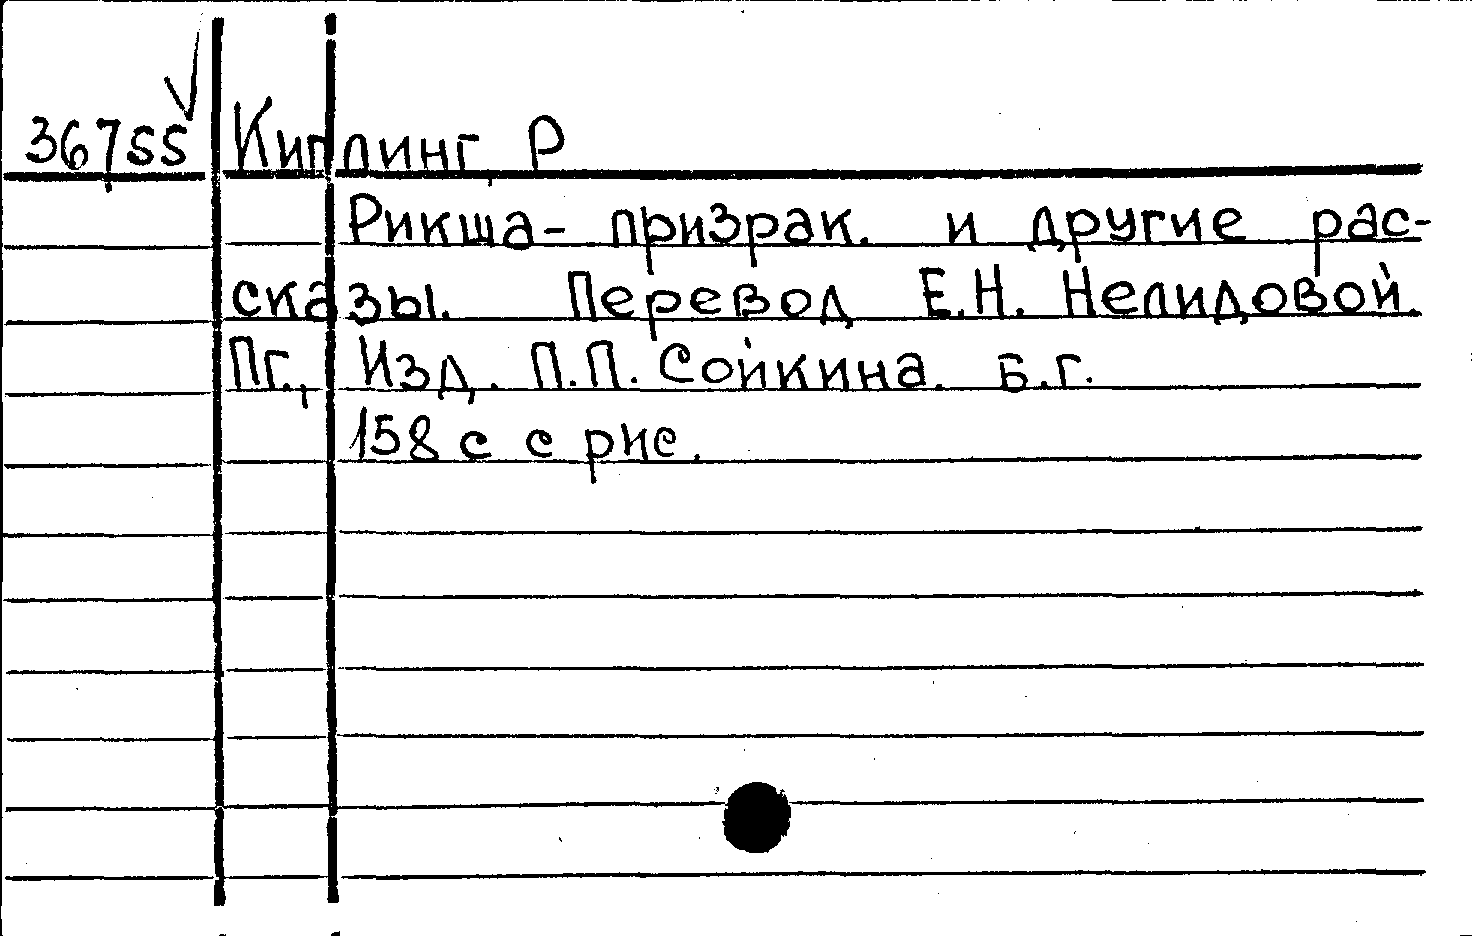 36755 Киплинг, Р
Рикша- призрак. и другие рас-
сказы. Перевод Е.Н. Нелидовой.
Пг., Изд. П.П. Сойкина. б.г.
158 с с рис.